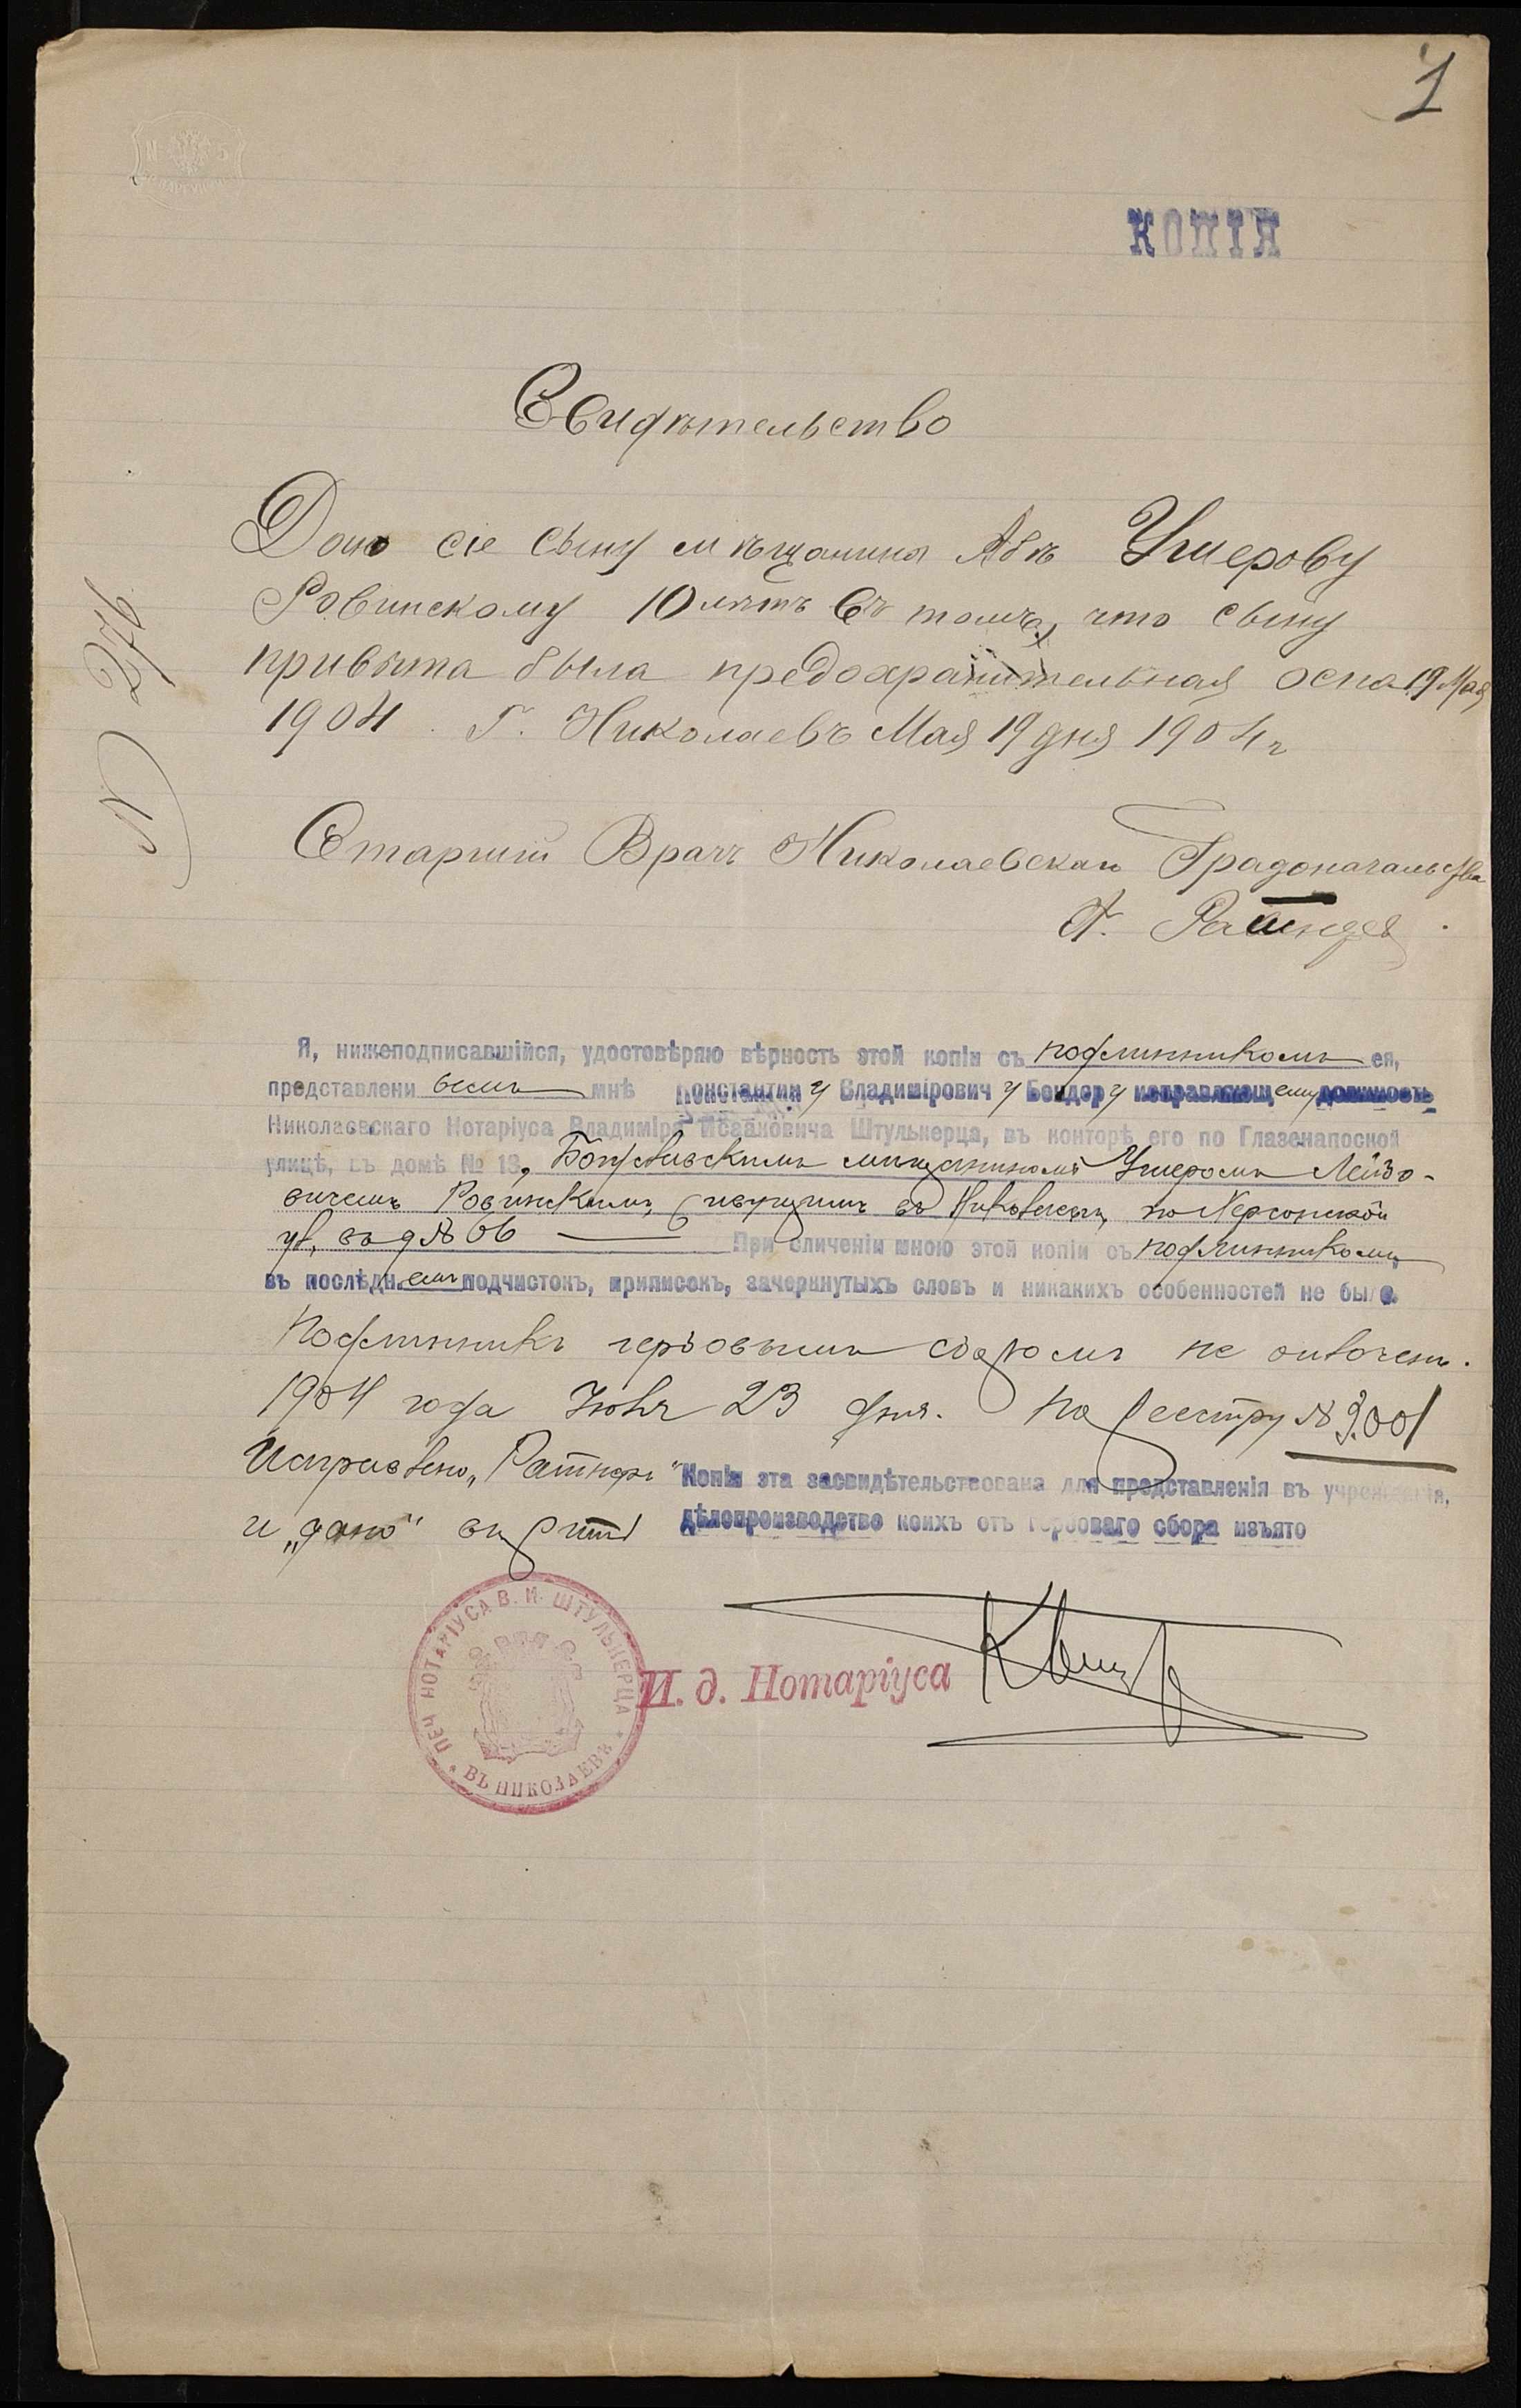 1
КОПІЯ
Свидѣтельство
Дано сіе сыну мѣщанина Абѣ Ушерову
Ровинскому 10 лѣтъ въ томъ, что сыну
привита была предохранительная оспа 19 Мая
1904 Г. Николаевъ Мая 19 дня 1904 г
N 276
Старшій Врачъ Николаевскаго Градоначальства
Я, нижеподписавшійся, удостовѣряю вѣрность этой копіи съ подлинникомъ ея,
представленнымъ мнѣ Константину Владиміровичу Бондеру исправляющему должность
Николаевскаго Нотаріуса Владиміра Исааковича Штульперца, въ конторѣ его по Глазенапоской
улицѣ, въ домѣ № 13, мѣщаниномъ Ушеромъ Лейзо-
вичемъ Ровинскимъ, живущимъ въ Николаевѣ, по Херсонской
ул, въ д №
При сличеніи мною этой копіи съ подлинникомъ,
въ послѣднемъ подчистокъ, приписокъ, зачеркнутыхъ словъ и никакихъ особенностей не было.
Подлинникъ гербовымъ сборомъ не оплаченъ.
1904 года Іюля 23 дня. По реестру № 3001
Исправлено „Ратнеръ"
и „дано"
Копія эта засвидѣтельствована для представленія въ учрежденія,
дѣлопроизводство коихъ отъ гербоваго сбора изъято
ПЕЧ НОТАРІУСА В. И. ШТУЛЬПЕРЦА * ВЪ НИКОЛАЕВѢ *
И. д. Нотаріуса